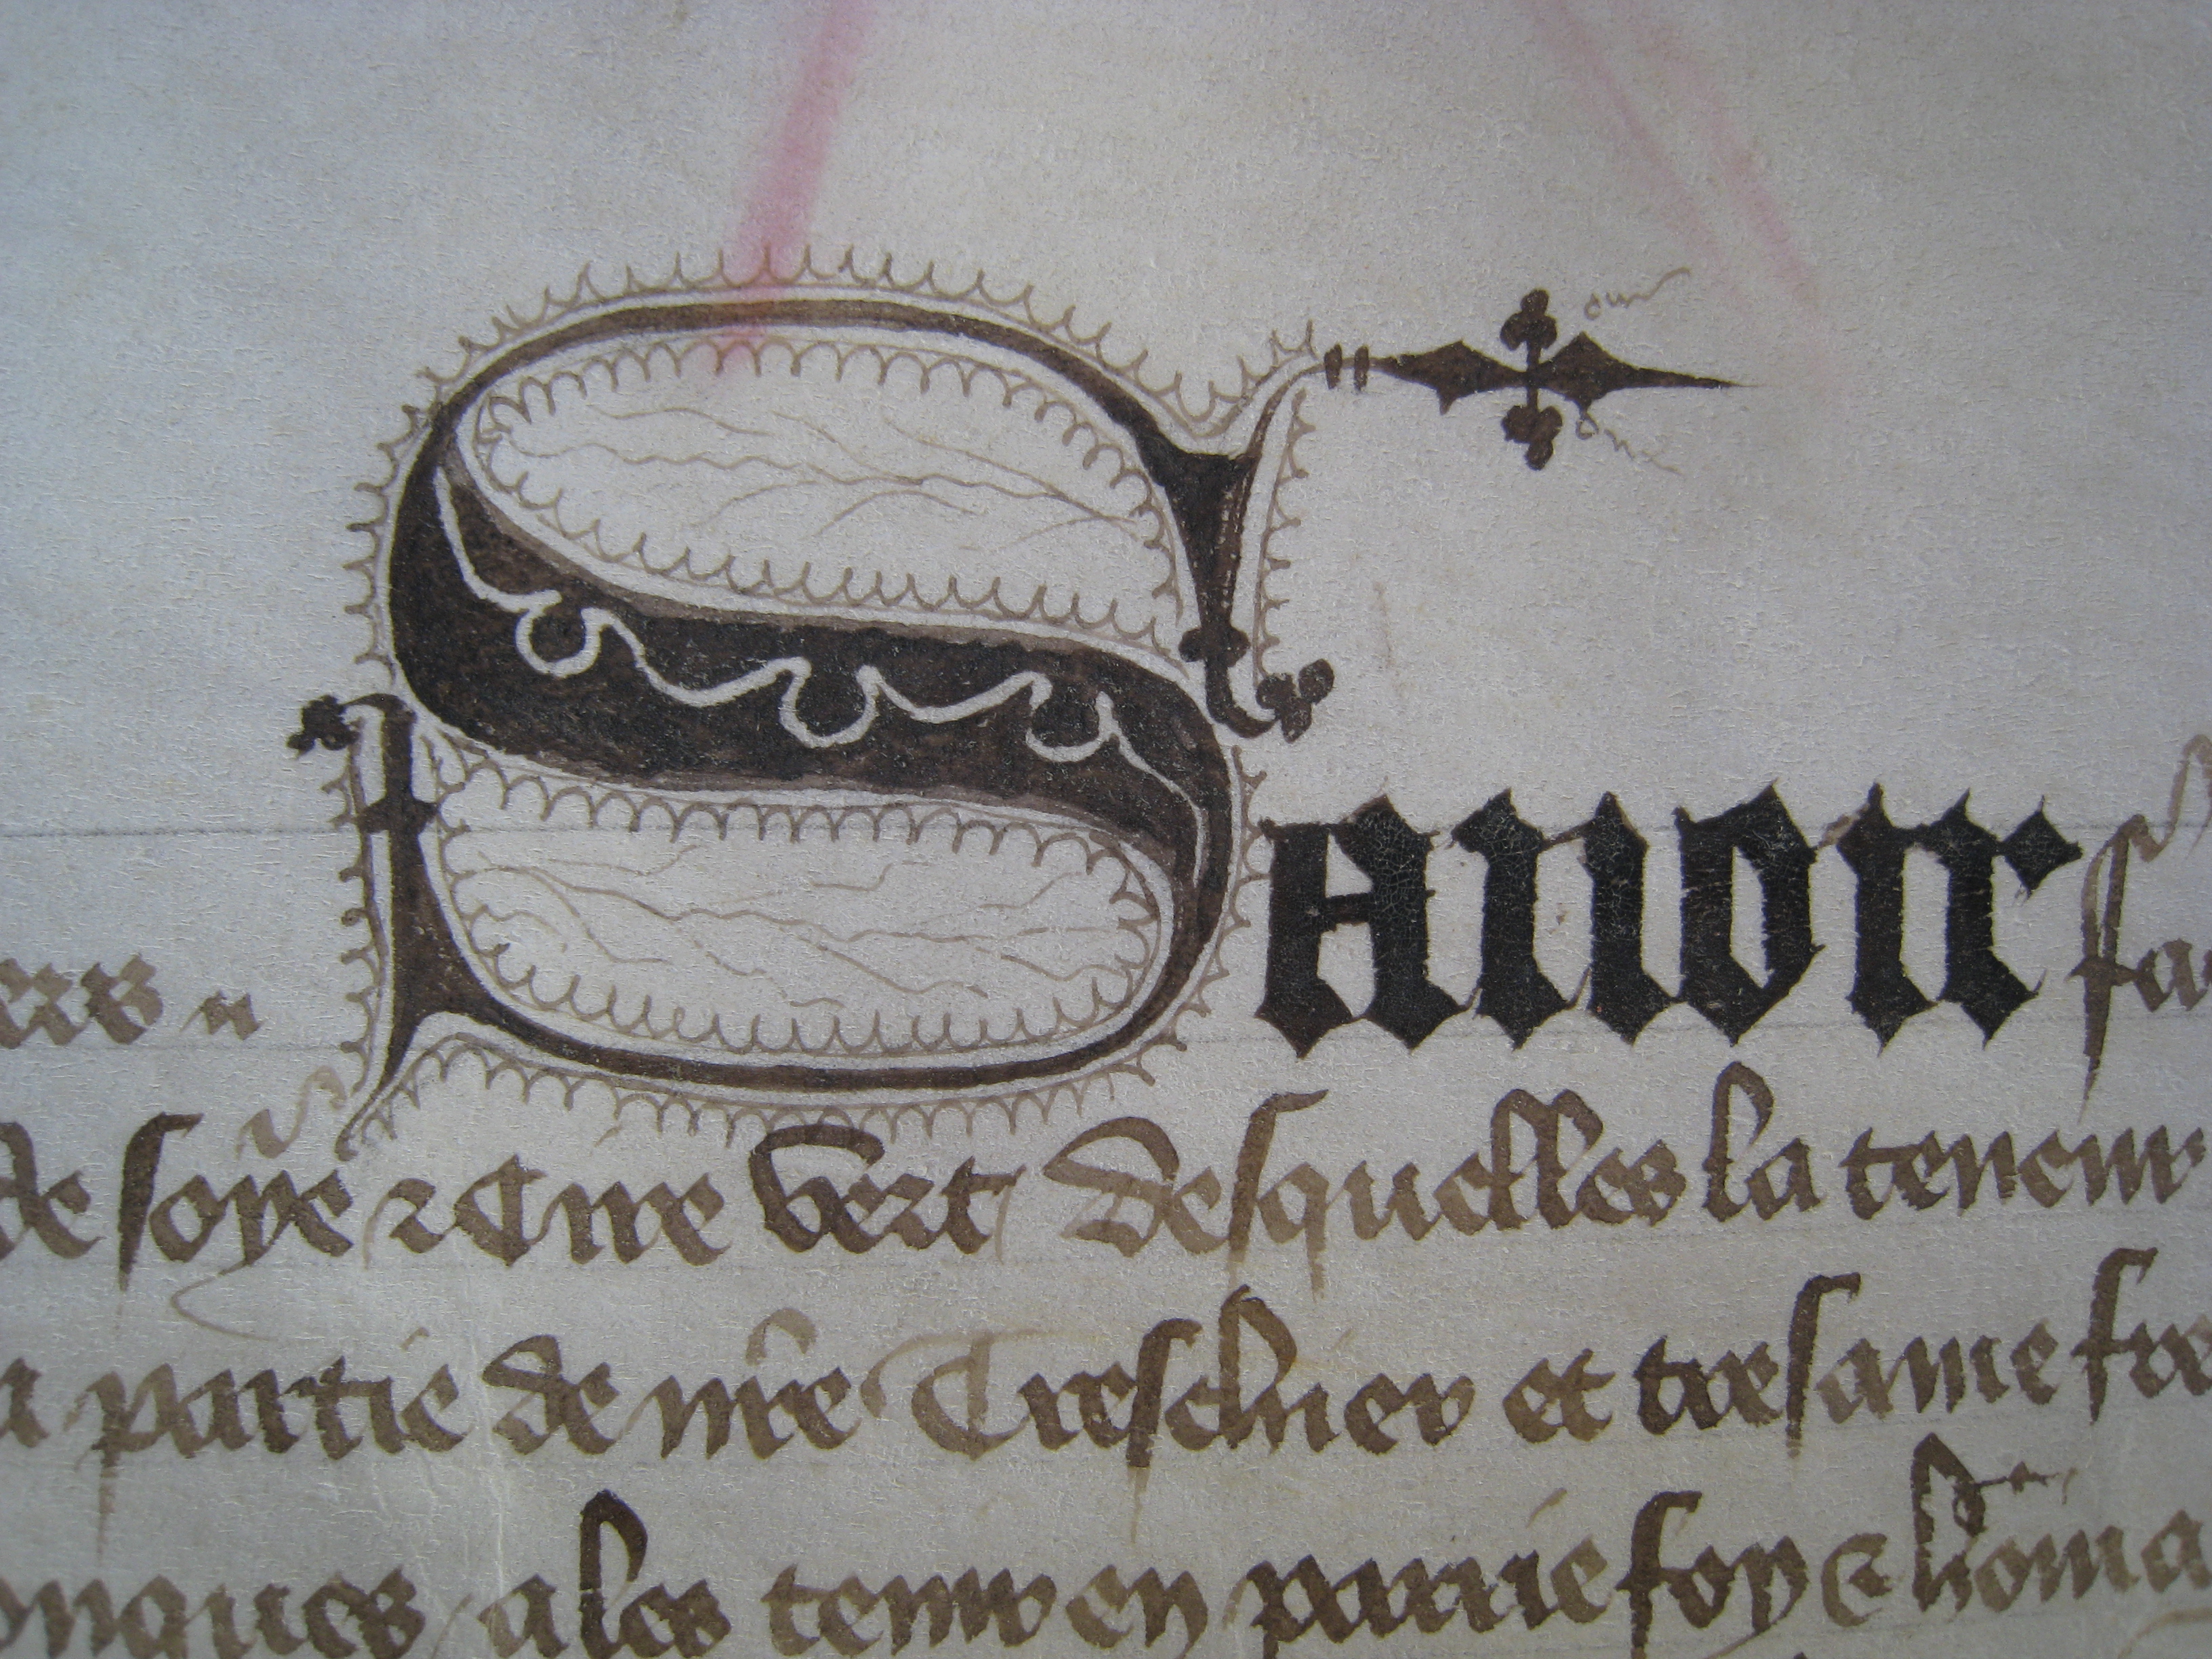 Sauoir fa
de soye & Cire vert desquelles la teneur
a partie de nr̃e Treschier et tresame fre
onques ales tenir en pairie foy & hom̃a